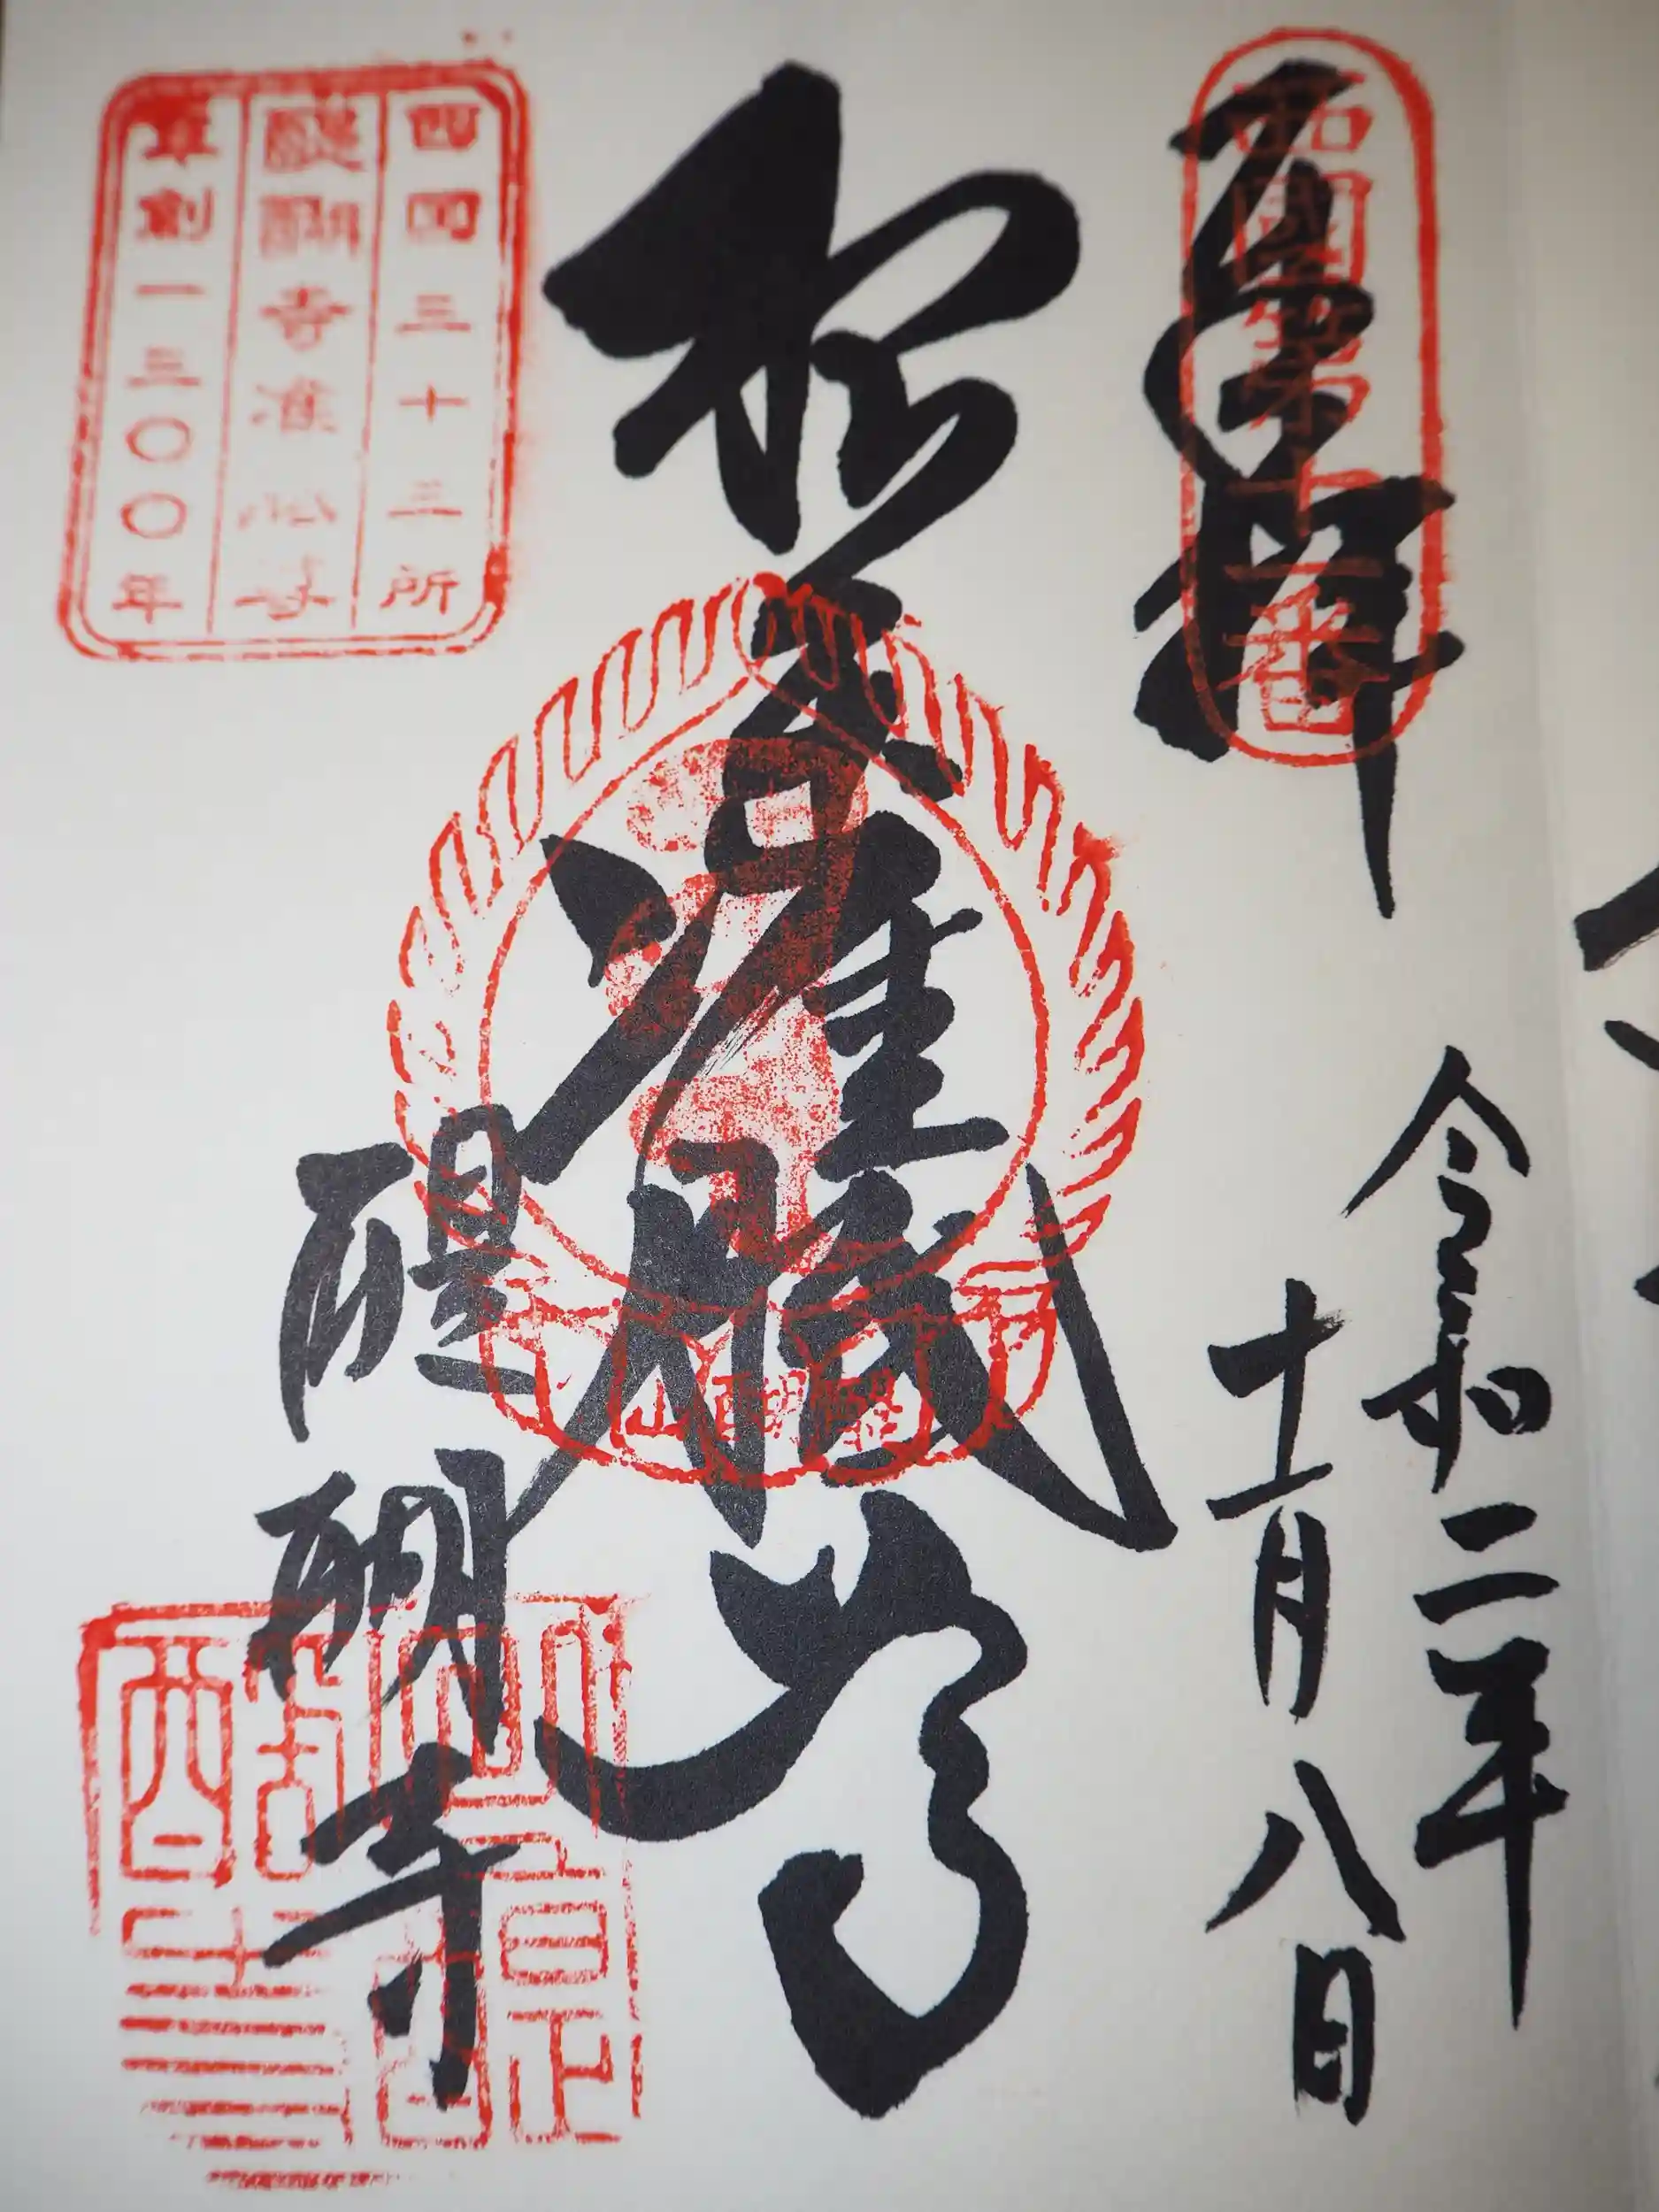 西國第十一番
奉拝
令和二年
十一月八日
根本准胝尊
醍醐寺
西国三十三所
醍醐寺准胝尊
草創一三〇〇年
醍醐山